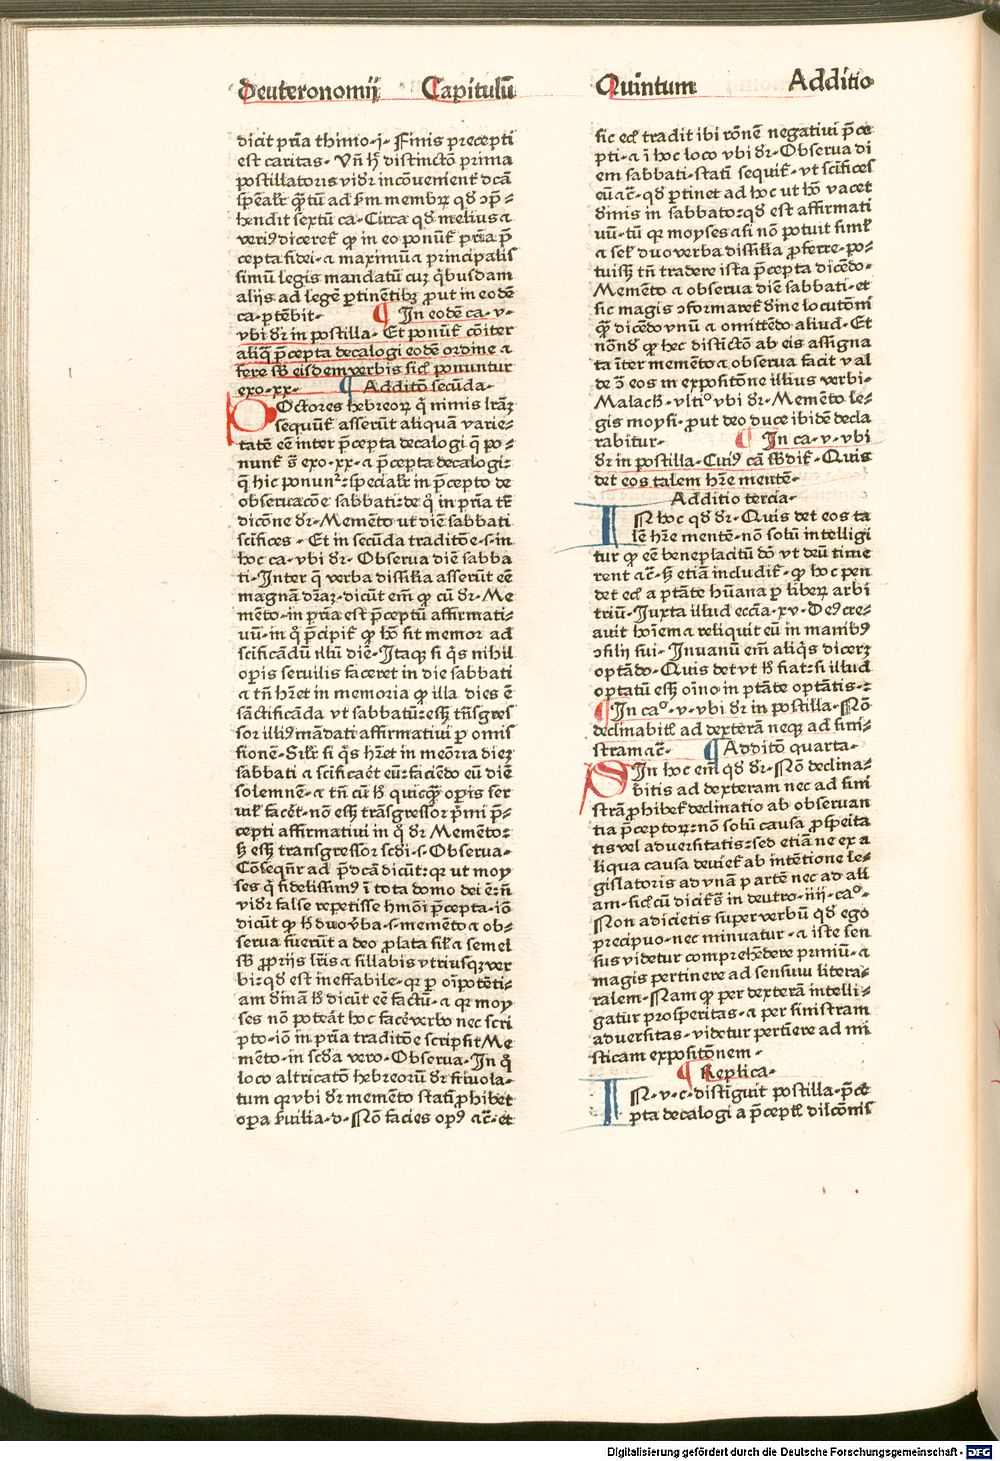 Deuteronomij Capitulū Quintum Additio
dicit pr̄ia thimo·j· Finis precepti
est caritas· Vn̄ h̄ distinctō prima
postillatoris vidr̄ incōuenient̄ dcā
sp̄ealr̄ q̄tū ad ẜm membꝝ qd̓ ɔp̄-
hendit sextū ca· Circa qd̓ melius ⁊
veriꝰ diceret̄ ꝙ in eo ponūt̄ pr̄ia p̄
cepta fidei· ⁊ maximū ⁊ principalis
simū legis mandatū cuꝫ q̄busdam
alijs ad legē ꝑtinētibꝫ ꝓut in eodē
ca· ptēbit· ¶ In eodē ca·v·
vbi dr̄ in postilla· Et ponūt̄ cōiter
aliq̄ p̄cepta decalogi eodē ordine ⁊
fere sb̄ eisdem verbis sic̄ ponuntur
exo·xx· ¶ Additō secūda·
DOctores hebreoꝝ q̄ nimis lr̄aꝫ
sequūt̄ asserūt aliquā varie-
tatē eē inter p̄cepta decalogi q̄ po-
nunt̄ s̄ exo·xx· ⁊ p̄cepta decalogi:
q̄ hic ponunt̄: specialr̄ in p̄cepto de
obseruacōe sabbati: de q̄ in pr̄ia tr̄
dicōne dr̄· Memēto ut diē sabbati
scīfices· Et in secūda traditōe·s·in
hoc ca· vbi dr̄· Obserua diē sabba
ti· Inter q̄ verba dissil̄ia asserūt eē
magnā dr̄aꝫ· dicūt em̄ ꝙ cū dr̄· Me
mēto· in pr̄ia est p̄ceptū affirmati-
uū· in q̄ p̄cipit̄ ꝙ hō sit memor ad
scīficādū illū diē· Itaqꝫ si q̄s nihil
oꝑis seruilis faceret in die sabbati
⁊ tn̄ hr̄et in memoria ꝙ illa dies ē
sāctificāda vt sabbatū: esꝫ tn̄sgres
sor illiꝰ mādati affirmatiui ꝑ omis
sionē· Silr̄ si q̄s hr̄et in meōria dieꝫ
sabbati ⁊ scīficaēt eū: faciēdo eū diē
solemnē· ⁊ tn̄ cū h̄ quiscq̄ oꝑis ser
uil̄ facēt· nō esꝫ trāsgressor p̄mi p̄-
cepti affirmatiui in q̄ dr̄ Memēto:
h̄ esꝫ transgressor scd̓i·s· Obserua·
Cōseqn̄r ad p̄dcā dicūt: qꝛ ut moy
ses q̄ fidelissimꝰ ī tota domo dei ē: n̄
vidr̄ false repetisse hmōi p̄cepta· iō
dicūt ꝙ h̄ duo v̄ba·s· memēto ⁊ ob-
serua fuerūt a deo ꝓlata sil̄ ⁊ semel
sb̄ ꝓprijs lr̄is ⁊ sillabis vtriusqꝫ ver
bi: qd̓ est ineffabile· qꝛ ꝑ oīpotēti-
am diuinā h̄ dicūt eē factū· ⁊ qꝛ moy
ses nō poteāt hoc facē verbo nec scri
pto· iō in pr̄ia traditōe scripsit Me
mēto· in scd̓a vero· Obserua· In q̄
loco altricatō hebreorū dr̄ friuola-
tum qꝛ vbi dr̄ memēto statī ꝓhibet
oꝑa ẜuilia· d· Nō facies opꝰ ⁊c̄· et
sic ecl̄ tradit ibi rōnē negatiui p̄ce
pti· ⁊ ī hoc loco vbi dr̄· Obserua di
em sabbati· statī sequit̄· vt scīfices
eū ⁊c̄· qd̓ ꝑtinet ad hoc ut hō vacet
diuinis in sabbato: qd̓ est affirmati
uū· tū qꝛ moyses ⁊ si nō potuit siml̄
⁊ sel̄ duo verba dissil̄ia ꝓferre· po-
tuisꝫ tn̄ tradere ista p̄cepta dicēdo·
Memēto ⁊ obserua diē sabbati· et
sic magis ɔformaret̄ diuine locutōni
q̄ dicēdo vnū ⁊ omittēdo aliud· Et
nōnd̓ ꝙ hec distīctō ab eis assigna
ta īter memēto ⁊ obserua facit val
de ɔ̄ eos in expositōne illius verbi·
Malach· vlti° vbi dr̄· Memēto le-
gis moysi· ꝓut deo duce ibidē decla
rabitur· ¶ In ca·v·vbi
dr̄ in postilla· Cuiꝰ cā sb̄dit̄· Quis
det eos talem hr̄e mentē·
Additio tercia·
IN hoc qd̓ dr̄· Quis det eos ta
lē hr̄e mentē· nō solū intelligi
tur ꝙ eē beneplacitū dō vt deū time
rent ⁊c̄· h̄ etiā includit̄· ꝙ hoc pen
det ecl̄ a ptāte hūana ꝑ liberꝝ arbi
triū· Juxta illud ecc̄ia·xv· Deꝰ cre-
auit hoīem ⁊ reliquit eū in manibꝰ
ɔsilij sui· In uanū em̄ aliq̄s dicerꝫ
optādo· Quis det vt h̄ fiat: si illud
optatū esꝫ oīno in ptāte optātis·:
¶ In ca°·v·vbi dr̄ in postilla· Nō
declinabit̄ ad dexterā neqꝫ ad sini-
stram ⁊c̄· ¶ Additō quarta·
SIn hoc em̄ qd̓ dr̄· Nō declina-
bitis ad dexteram nec ad sini
strā ꝓhibet̄ declinatio ab obseruan
tia p̄ceptoꝝ: nō solū causa ꝓspeita
tis vel aduersitatis: sed etiā ne ex a
liqua causa deuiet̄ ab intētione le-
gislatoris ad vnā partē nec ad ali
am· sic̄ cū dicit̄ s̄ in deutro·iiij·ca°·
Non adicietis super verbū qd̓ ego
precipuo· nec minuatur· ⁊ iste sen
sus videtur comprehēdere p̄miū· ⁊
magis pertinere ad sensum litera-
ralem· Nam ꝙ per dexterā intelli-
gatur prosperitas· ⁊ per sinistram
aduersitas· videtur pertiere ad mi
sticam expositōnem·
¶ Replica·
IN·v·c·distīguit postilla· p̄ce
pta decalogi a p̄ceptl̄ dilcōnis
Digitalisierung gefördert durch die Deutsche Forschungsgemeinschaft - DFG